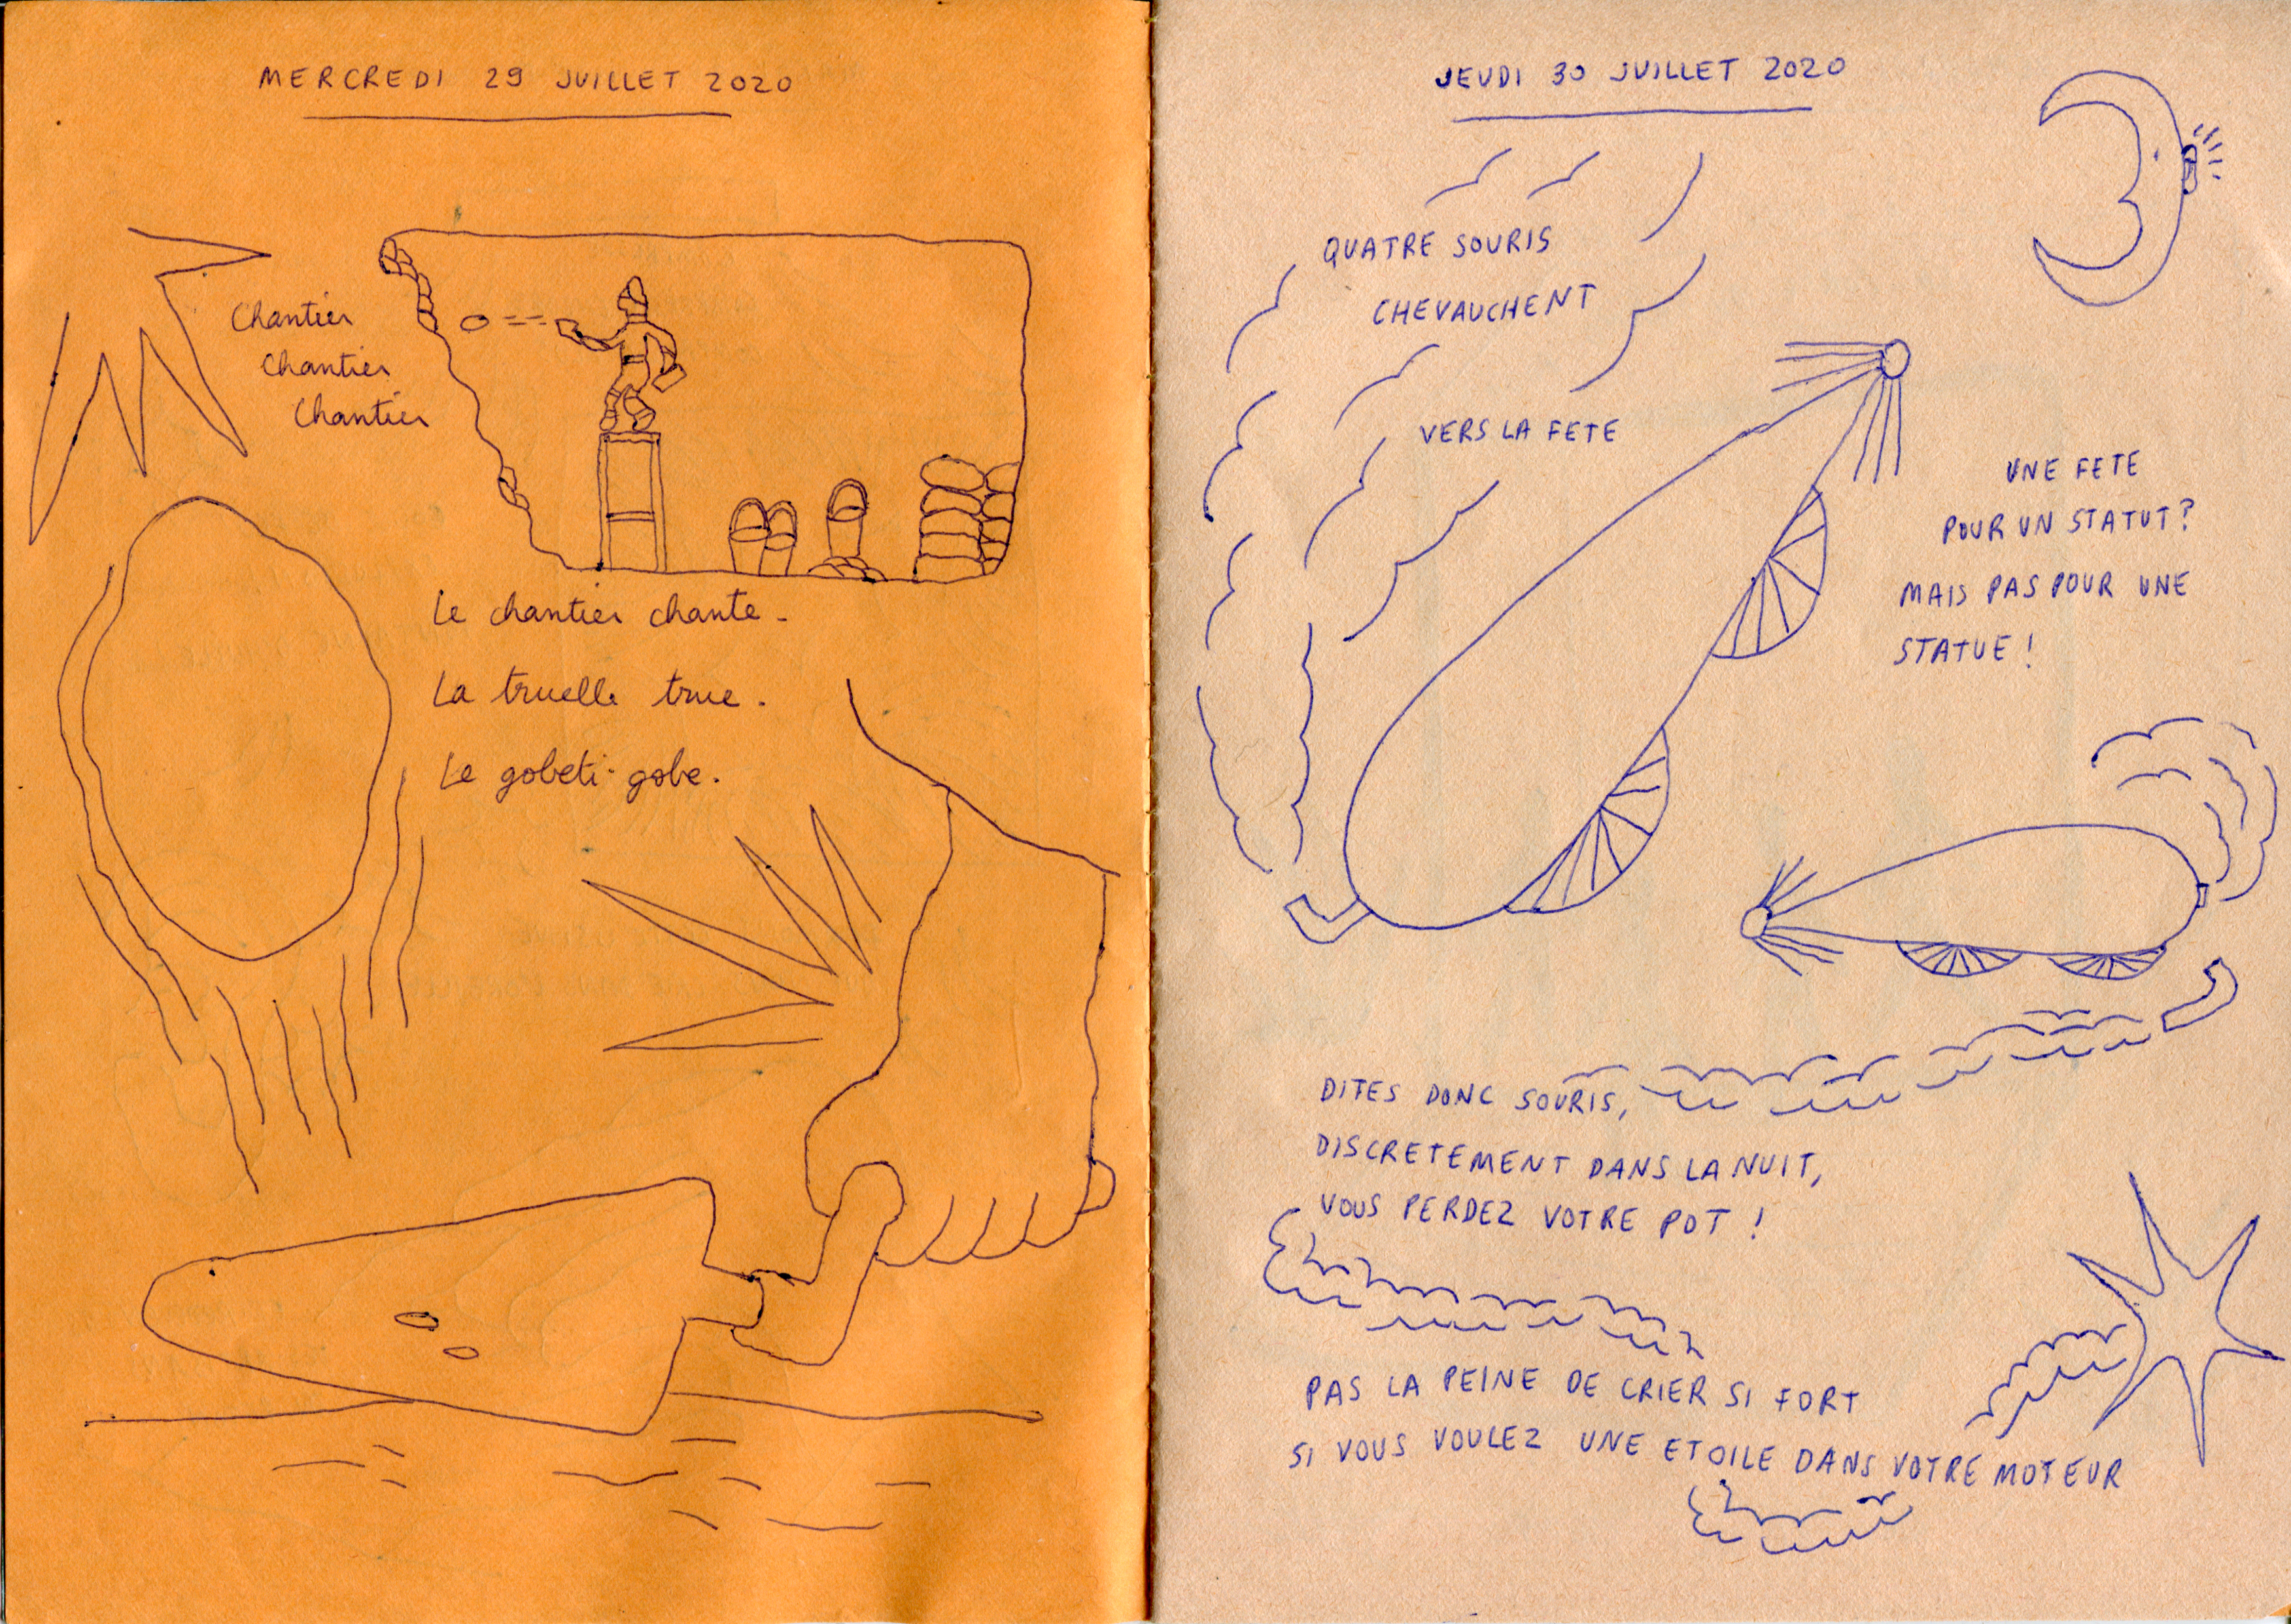 MERCREDI 29 JUILLET 2020
Chantier
Chantier
Chantier
Le chantier chante.
La truelle true.
Le gobeti-gobe.
JEUDI 30 JUILLET 2020
QUATRE SOURIS
CHEVAUCHENT
VERS LA FETE
UNE FETE
POUR UN STATUT?
MAIS PAS POUR UNE
STATUE!
DITES DONC SOURIS,
DISCRETEMENT DANS LA NUIT,
VOUS PERDEZ VOTRE POT !
PAS LA PEINE DE CRIER SI FORT
SI VOUS VOULEZ UNE ETOILE DANS VOTRE MOTEUR